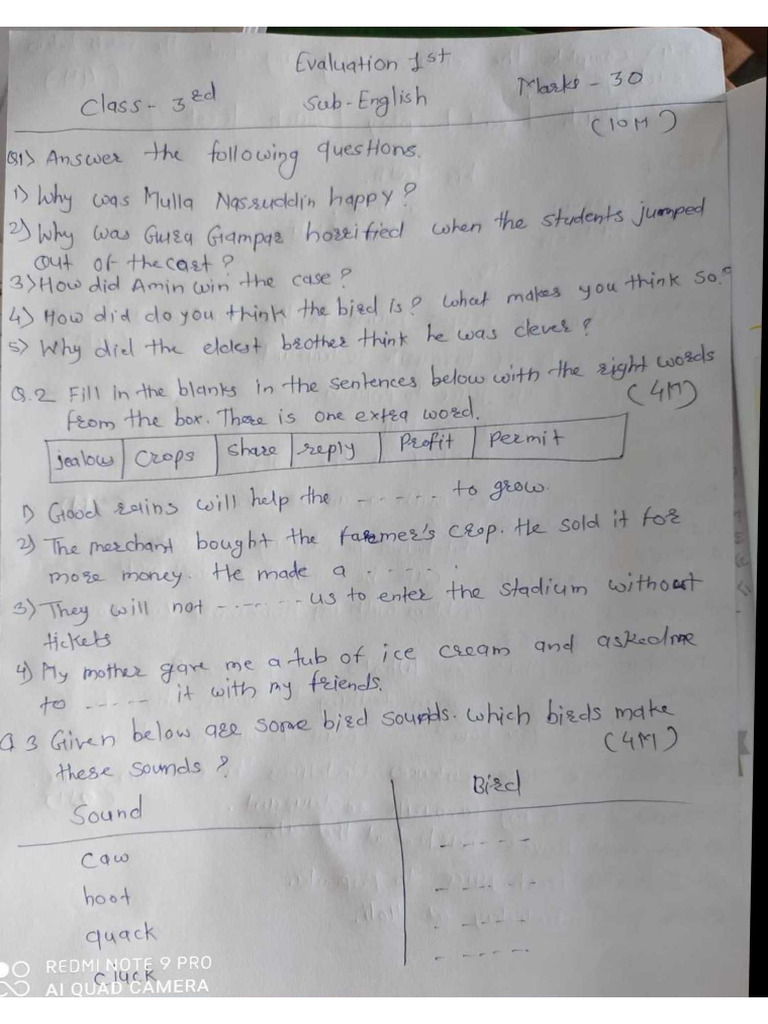 Evaluation 1st
Class- 3rd Sub-English Marks - 30
(10M)
Q1) Answer the following questions.
1) Why was Mulla Nasruddin happy?
2) Why was Guru Gampar horrified when the students jumped
out of the cart?
3) How did Amin win the case?
4) How did do you think the bird is? What makes you think so?
5) Why did the eldest brother think he was clever?
Q.2 Fill in the blanks in the sentences below with the right words
from the box. There is one extra word. (4M)
jealow crops share reply Profit Permit
1) Good rains will help the ----- to grow.
2) The merchant bought the farmer's crop. He sold it for
more money. He made a -----.
3) They will not ------ us to enter the stadium without
tickets
4) My mother gave me a tub of ice cream and asked me
to ----- it with my friends.
Q 3 Given below are some bird sounds. which birds make
these sounds? (4M)
Sound Bird
caw -----
hoot -----
quack -----
cluck -----
REDMI NOTE 9 PRO
AI QUAD CAMERA